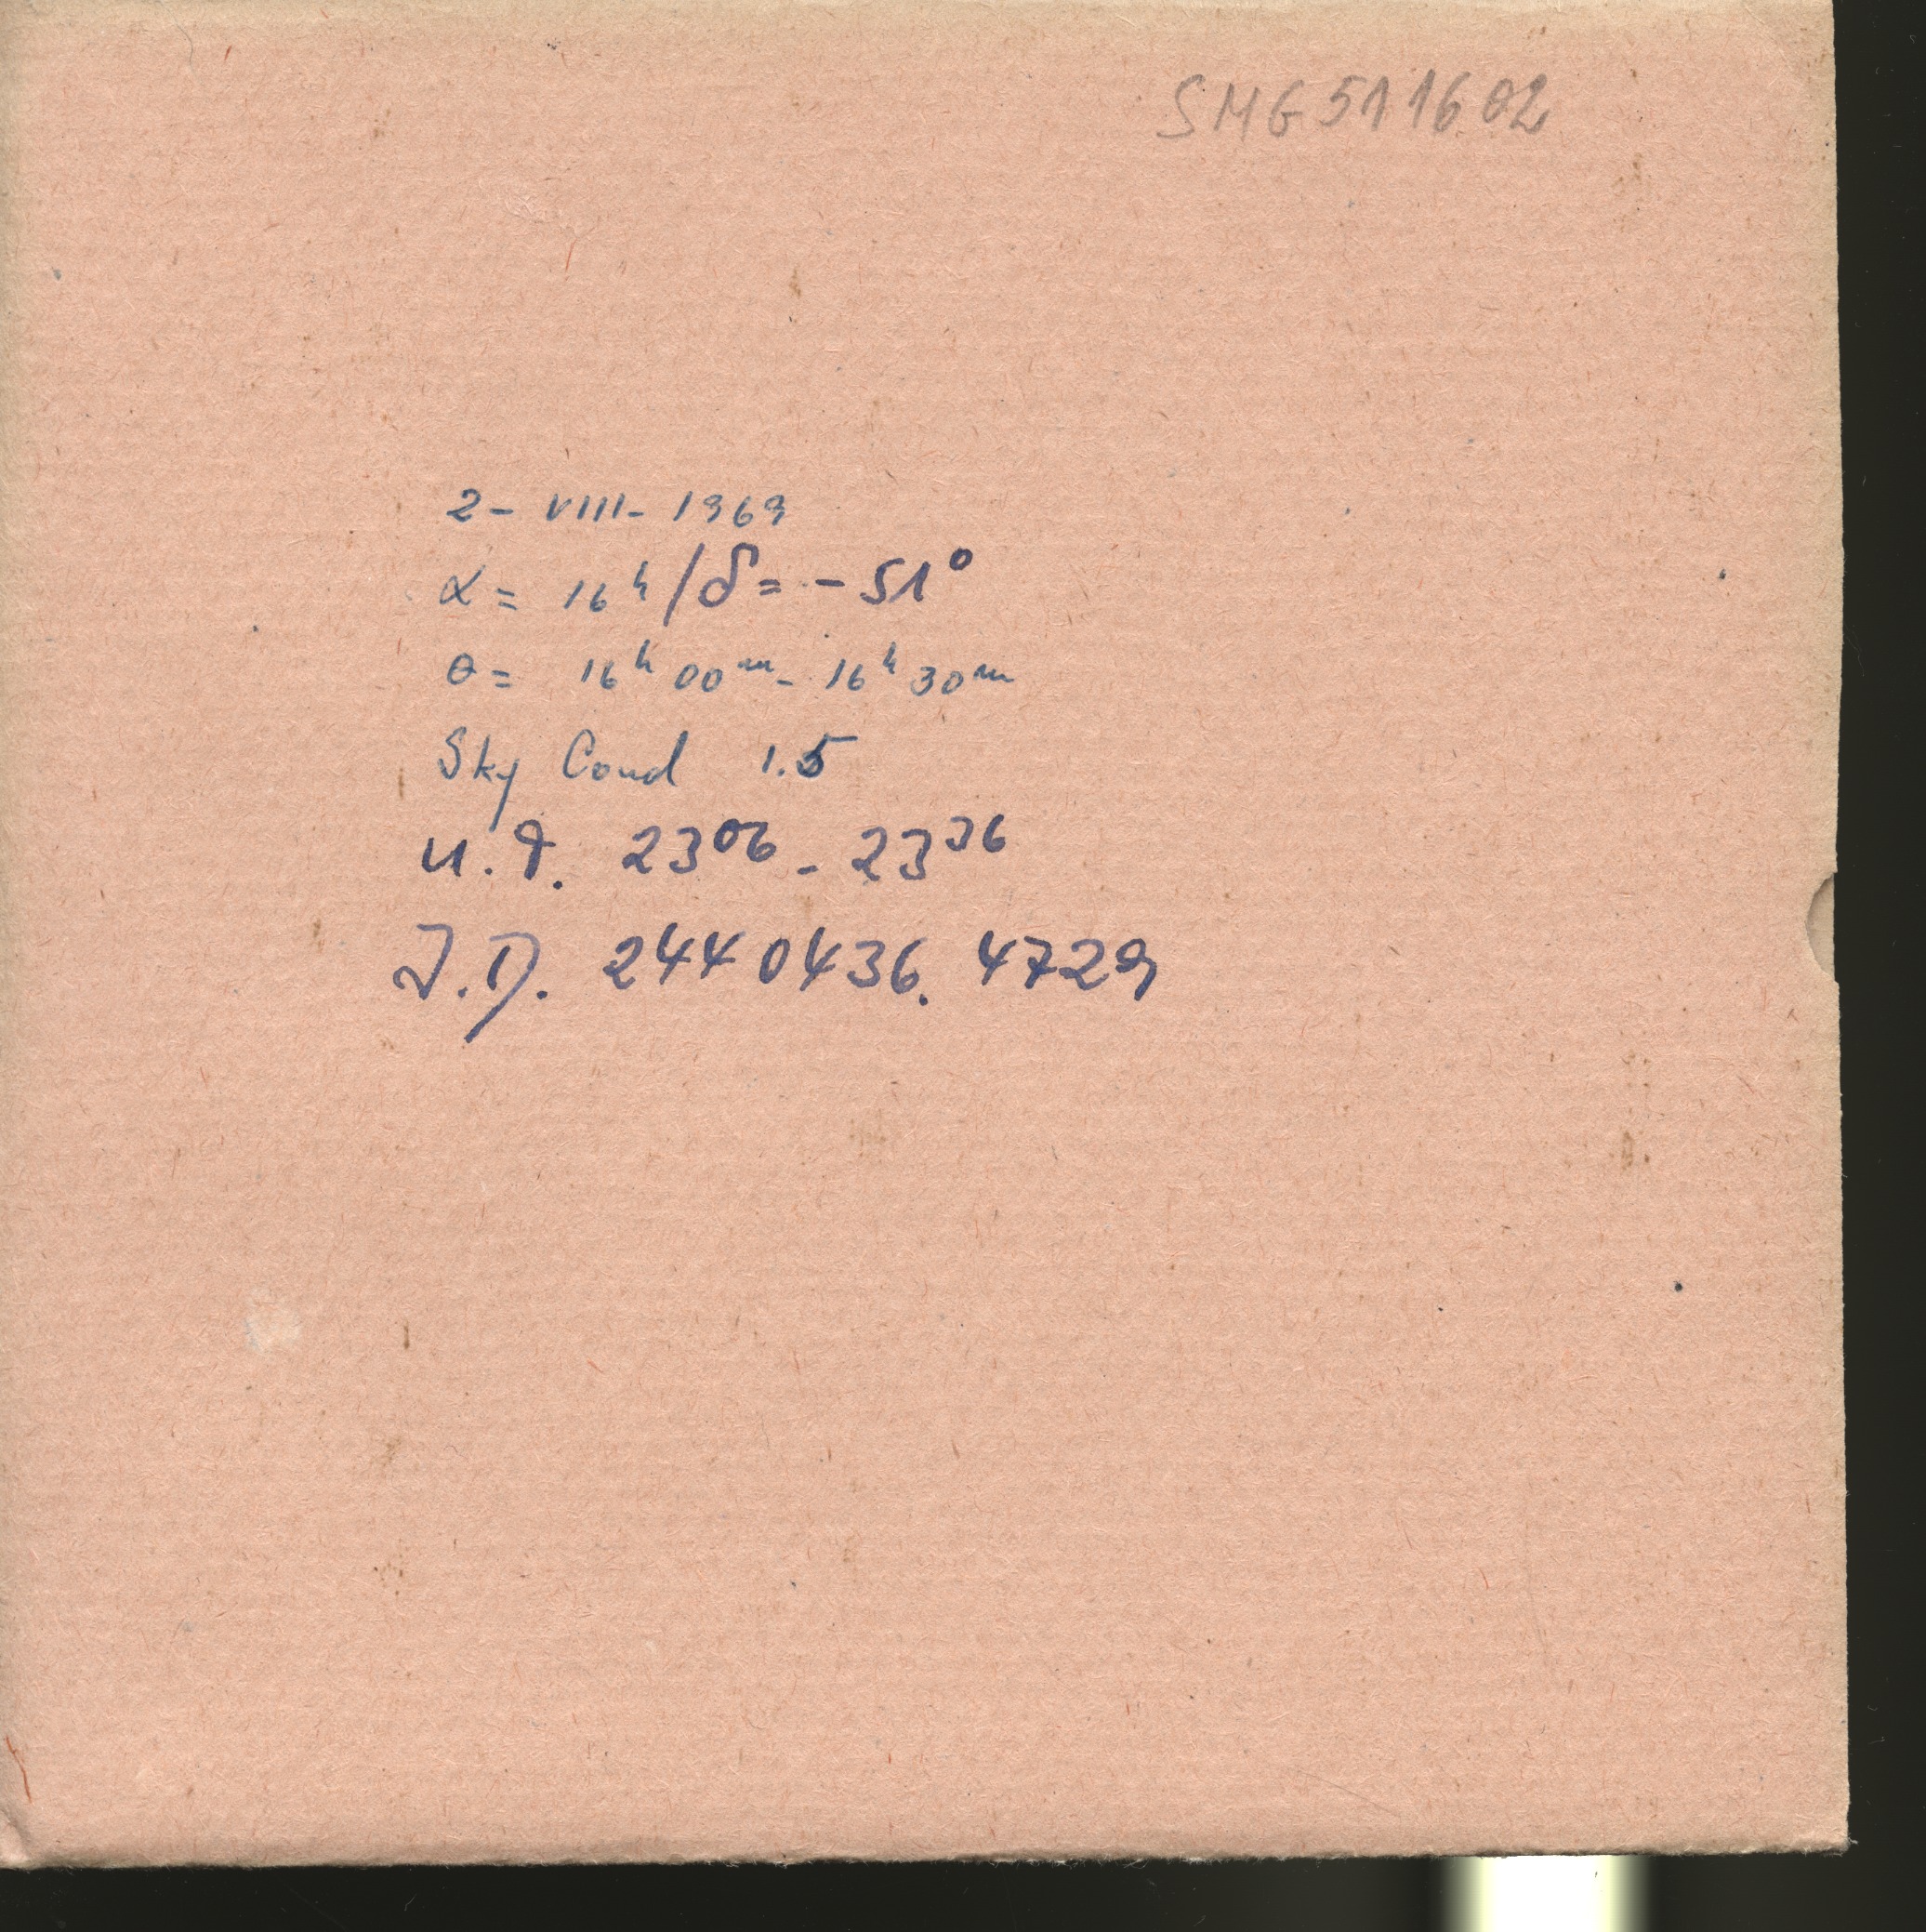 SMG511602
2- VIII- 1969
α = 16ʰ / δ = - 51°
θ = 16ʰ 00ᵐ - 16ʰ 30ᵐ
Sky Cond 1.5
U.T. 23⁰⁶ - 23³⁶
J.D. 2440436.4729